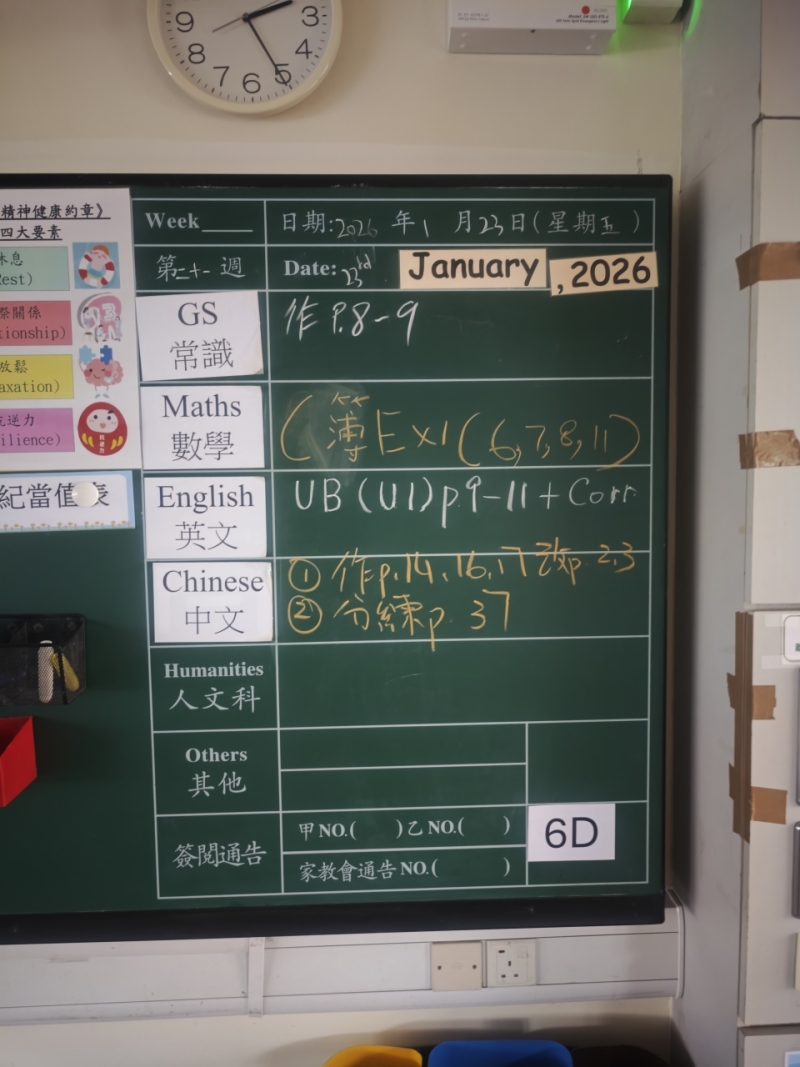 9 8 7 6 5 4 3
精神健康約章》
四大要素
休息
Rest)
係關係
tionship)
放鬆
axation)
逆力
ilience)
紀當值表
Week____ 日期:2026 年1 月23日(星期五)
第二十一週 Date: 23rd January, 2026
GS
常識
作 P.8-9
Maths
數學
(簿Ex1(6,7,8,11)
English
英文
UB (U1) p.9-11 + Corr
Chinese
中文
① 作p.14,16,17 改p. 2,3
② 分練p. 37
Humanities
人文科
Others
其他
簽閱通告
甲NO.( )乙NO.( )
家教會通告NO.( )
6D